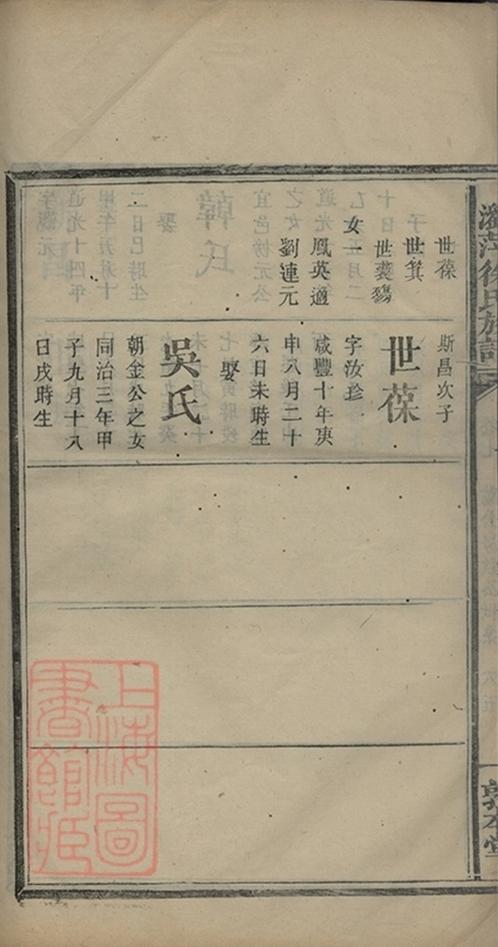 世葆
世箕
世夔殤
女
鳳英適
劉連元
斯昌次子
世葆
字汝珍
咸豐十年庚
申八月二十
六日未時生
娶
吳氏
朝金公之女
同治三年甲
子九月十八
日戌時生
徐氏族譜
敦本堂
上海圖
書館藏